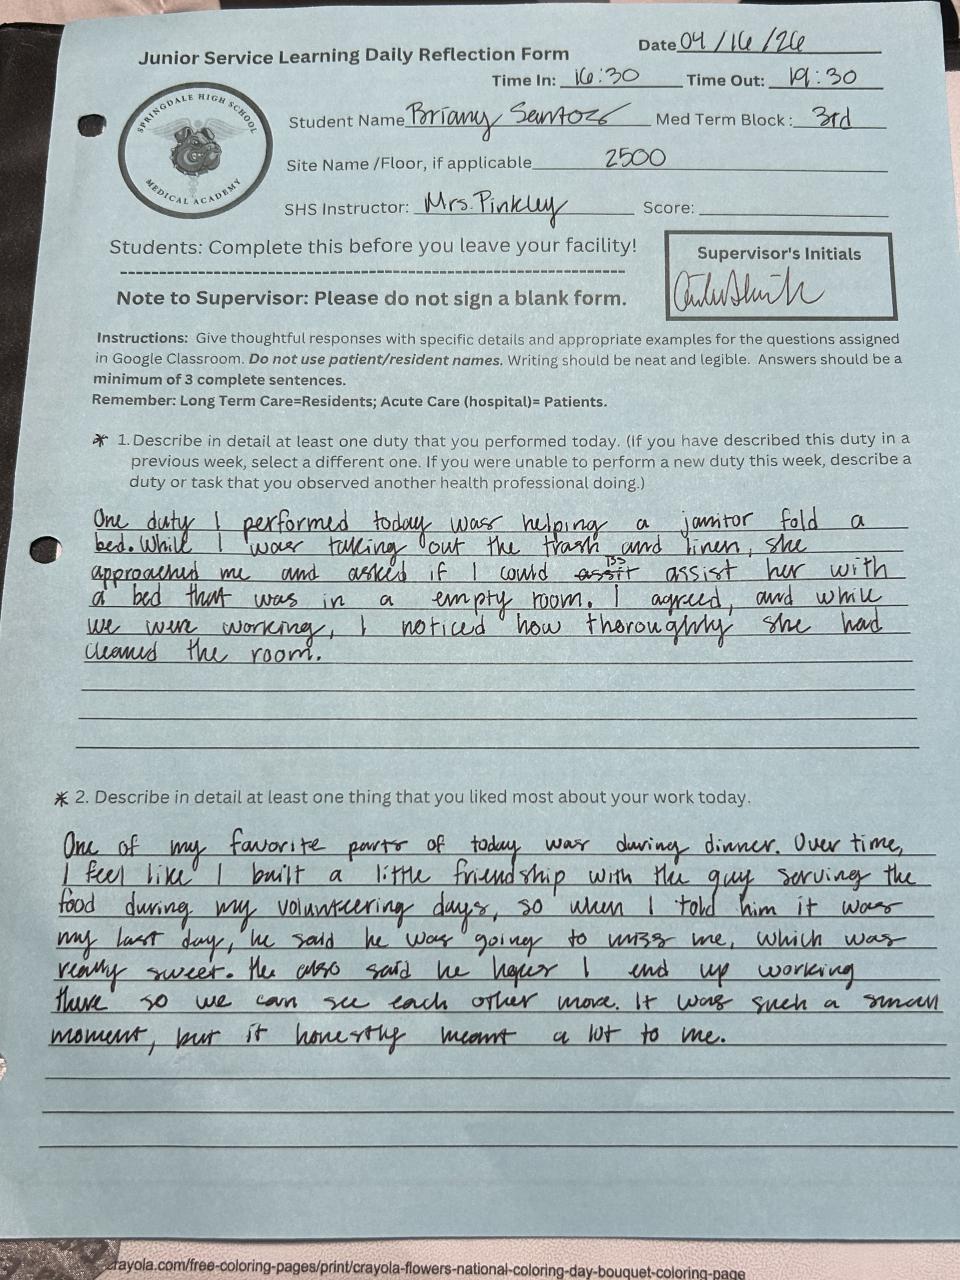 Junior Service Learning Daily Reflection Form
Date 04/16/26
Time In: 16:30 Time Out: 19:30
SPRINGDALE HIGH SCHOOL
MEDICAL ACADEMY
Student Name Briany Santos Med Term Block: 3rd
Site Name /Floor, if applicable 2500
SHS Instructor: Mrs. Pinkley Score:
Students: Complete this before you leave your facility!
Supervisor's Initials
Note to Supervisor: Please do not sign a blank form.
Instructions: Give thoughtful responses with specific details and appropriate examples for the questions assigned
in Google Classroom. Do not use patient/resident names. Writing should be neat and legible. Answers should be a
minimum of 3 complete sentences.
Remember: Long Term Care=Residents; Acute Care (hospital)= Patients.
* 1. Describe in detail at least one duty that you performed today. (If you have described this duty in a
previous week, select a different one. If you were unable to perform a new duty this week, describe a
duty or task that you observed another health professional doing.)
One duty I performed today was helping a janitor fold a
bed. While I was taking out the trash and linen, she
approached me and asked if I could assist her with
a bed that was in a empty room. I agreed, and while
we were working, I noticed how thoroughly she had
cleaned the room.
* 2. Describe in detail at least one thing that you liked most about your work today.
One of my favorite parts of today was during dinner. Over time,
I feel like I built a little friendship with the guy serving the
food during my volunteering days, so when I told him it was
my last day, he said he was going to miss me, which was
really sweet. He also said he hopes I end up working
there so we can see each other more. It was such a small
moment, but it honestly meant a lot to me.
rayola.com/free-coloring-pages/print/crayola-flowers-national-coloring-day-bouquet-coloring-page